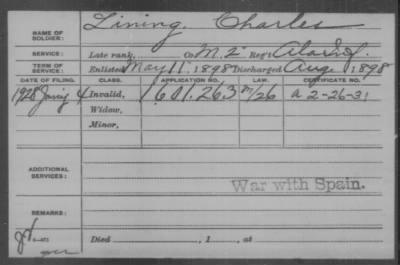 NAME OF SOLDIER: Lining, Charles
SERVICE: Late rank, Co. M. 2 Reg't Ala. Inf.
TERM OF SERVICE: Enlisted May 11, 1898 Discharged Aug 1898
DATE OF FILING. CLASS. APPLICATION NO. LAW. CERTIFICATE NO.
1928 4 Invalid, 1601.263 26 a 2-26-31
Widow,
Minor,
ADDITIONAL SERVICES:
War with Spain.
REMARKS:
Died , 1 , at